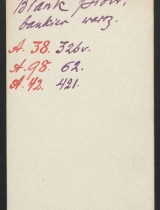 Blank Piotr,
bankier warsz.
A. 38. 326v.
A. 98. 62.
A. 42. 421.